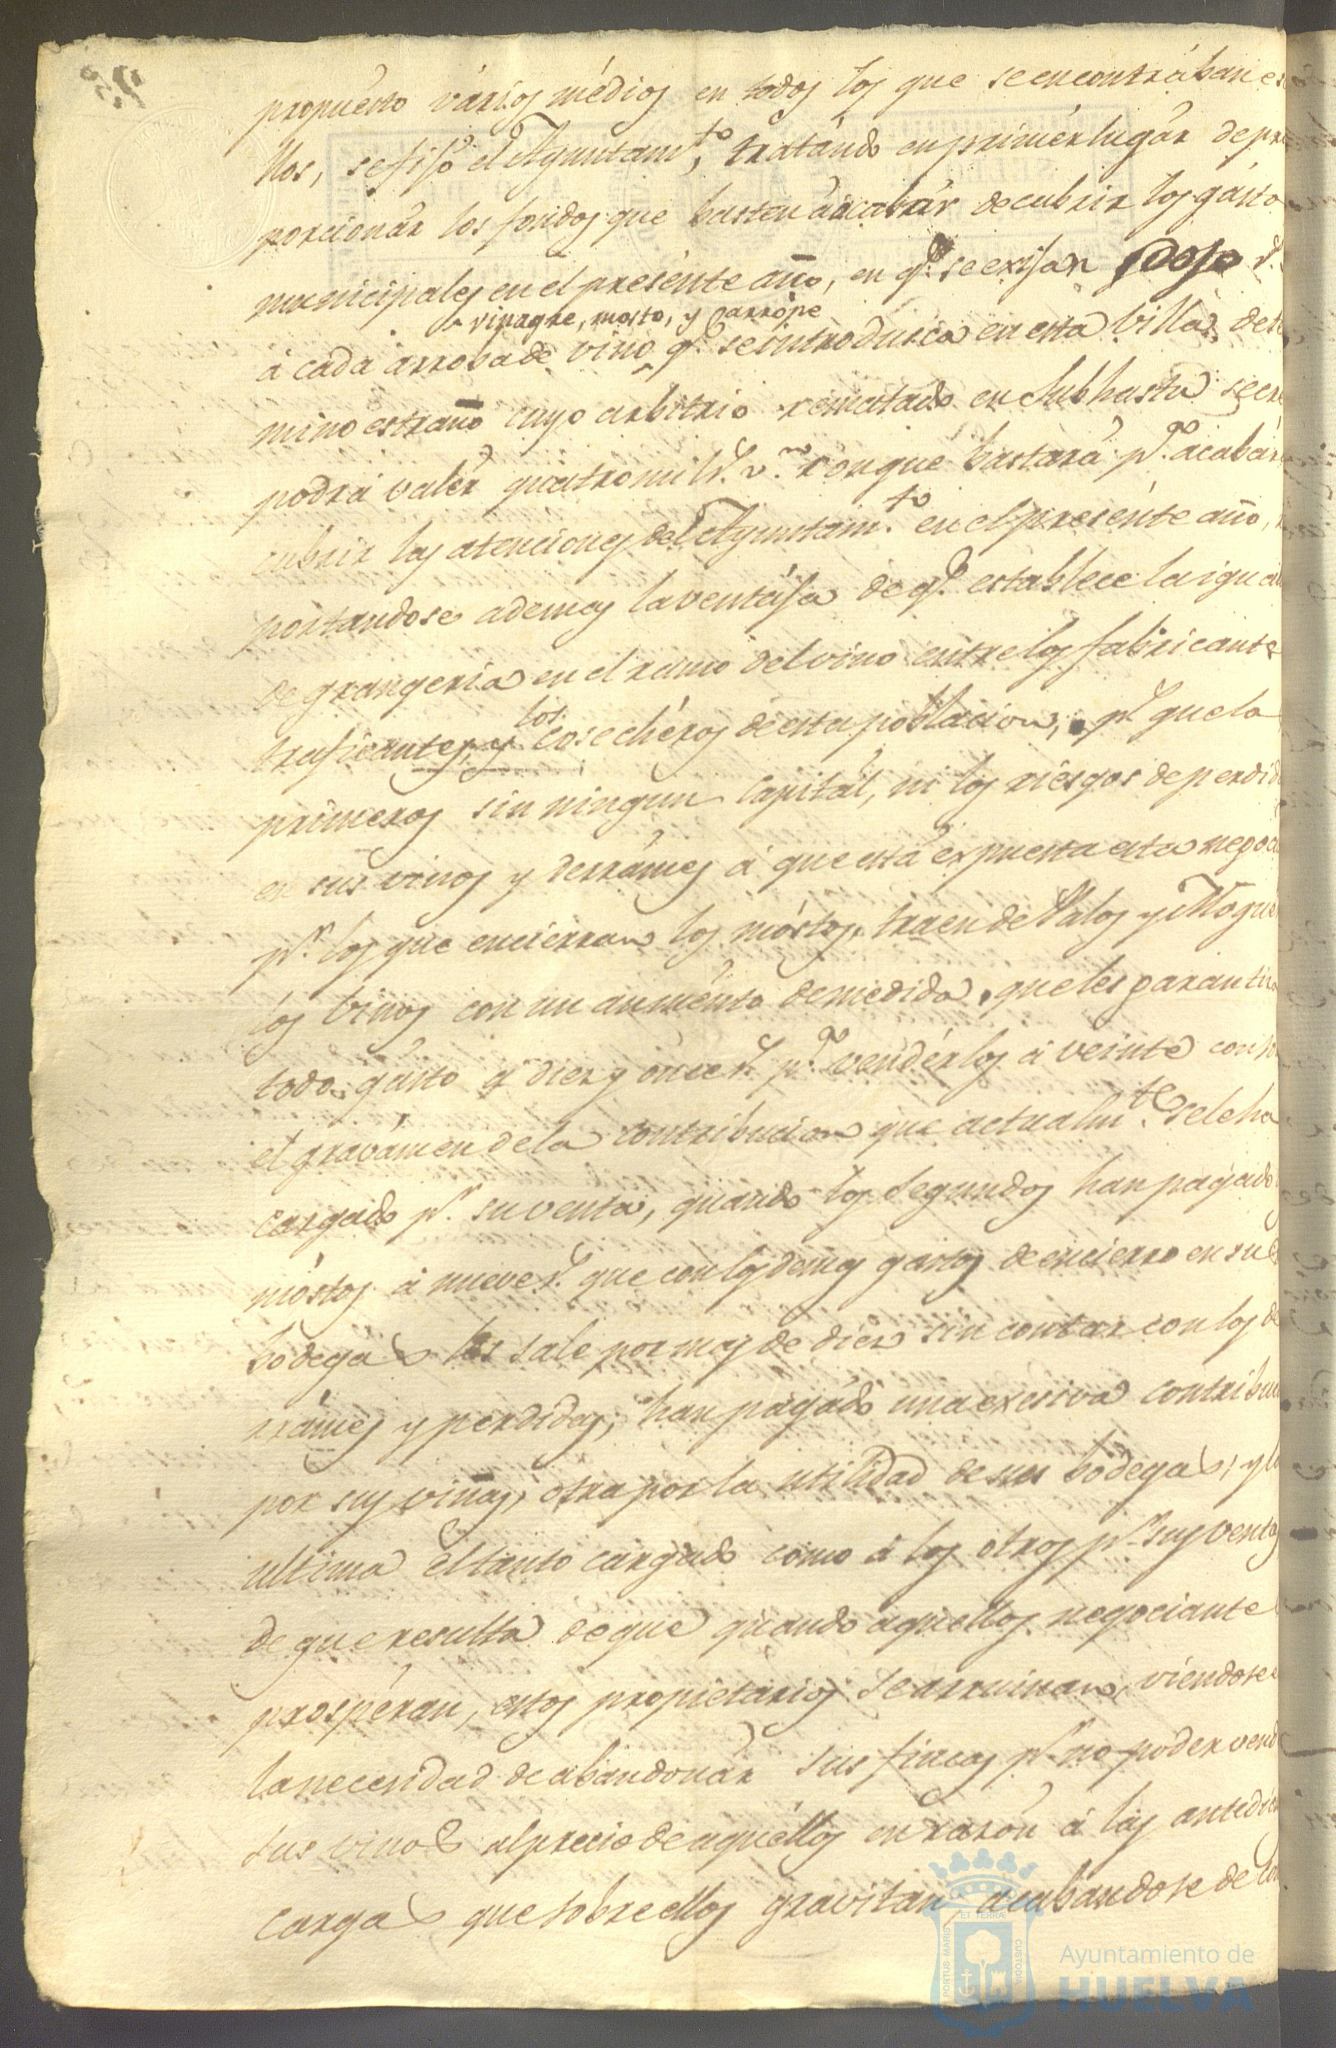 propuesto vários médios en todos los que se encontrában e
llos, se fijó el Ayuntam.to, tratándo en primér lugár de pro
porcionár los fondos que basten á acabár de cubrir los gásto
municipales en el presénte año, en q.e se exijan dos r.s
vinagre, mosto, y arrópe
á cada arroba de vino q.e se introdusca en esta Villa de té
mino estraño cuyo arbitrio rematado en subhasta se cre
podrá valér quatro mil r.s v.n con que bastará p.a acabár
cubrir las atenciones del Ayuntam.to en el presénte año,
portandose ademas la ventája de q.e establece la igual
de grangeria en el ramo del vino entre los fabricante
los
traficantes, y cosechéros de esta poblacion, p.r que lo
primeros sin ningun capitál, ni los riésgos de perdid
en sus vinos y derrámes á que está expuesta esta negoci
p.r los que encierran los móstos, traen de Palos y Mogué
los vinos con un auménto de medida, que les garantiza
todo gásto á diez y once r.s p.a vendérlos á veinte con so
el gravámen de la contribucion que actualm.te se le ha
cargado p.r su venta, quando los segundos han pagado
móstos á nueve r.s que con los demas gastos de encierro en su
bodegas les sale por mas de diez sin contar con los de
rrámes y perdidas, han pagádo una exesiva contribu
por sus viñas, otra por la utilidad de sus bodegas, y la
ultima el tanto cargado cómo á los otros p.r sus venta
de que resulta de que quando aquellos negociante
prospéran, estos propietarios se arruinan, viendose e
la necesidad de abandonár sus fincas p.r no poder vend
sus vinos al precio de aquéllos en razón á las antedi
cargas que sobre ellos gravitan, acabandose de
PORTUS MARIS ET TERRAE CUSTODIA
Ayuntamiento de
HUELVA